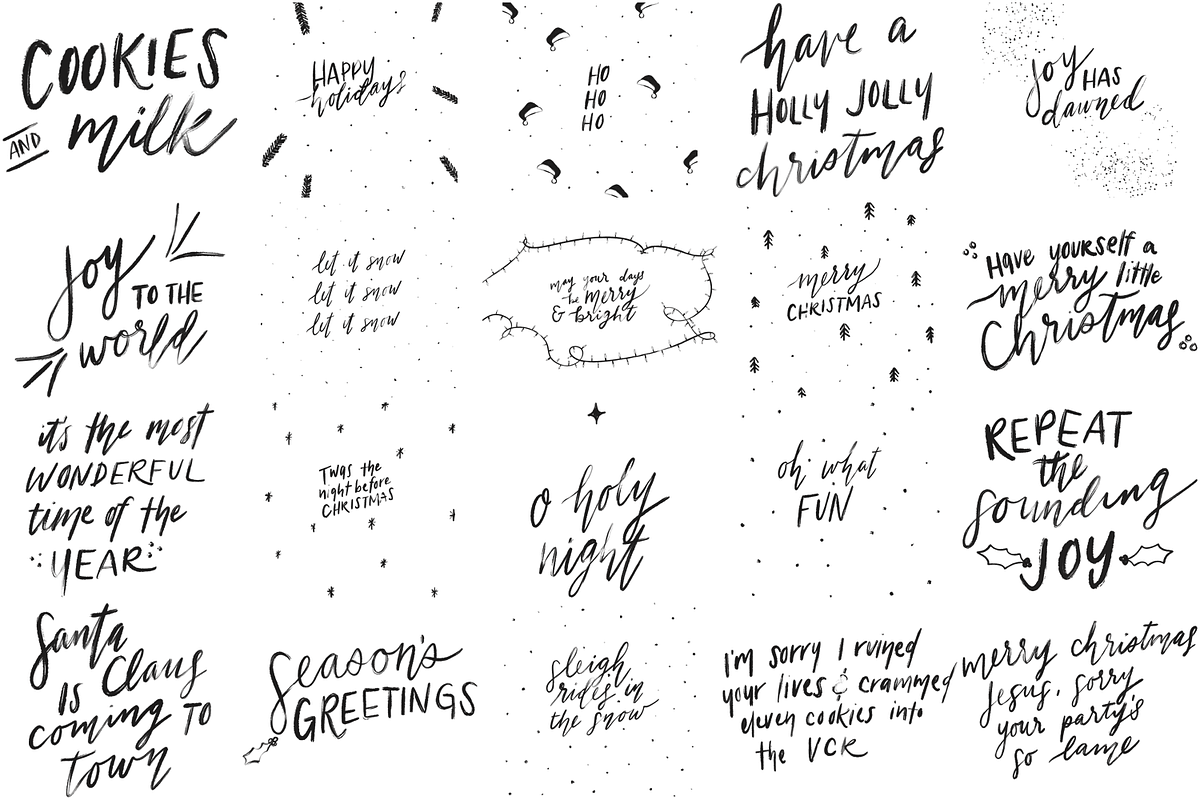 COOKIES
AND milk
HAPPY
holidays
HO
HO
HO
have a
HOLLY JOLLY
christmas
joy HAS
dawned
Joy
TO THE
world
let it snow
let it snow
let it snow
may your days
be merry
& bright
merry
CHRISTMAS
Have yourself a
merry little
Christmas
it's the most
WONDERFUL
time of the
YEAR
Twas the
night before
CHRISTMAS
o holy
night
oh what
FUN
REPEAT
the
sounding
JOY
Santa
IS Claus
coming TO
town
Season's
GREETINGS
sleigh
rides in
the snow
I'm sorry I ruined
your lives & crammed
eleven cookies into
the VCR
merry christmas
Jesus. sorry
your party's
so lame